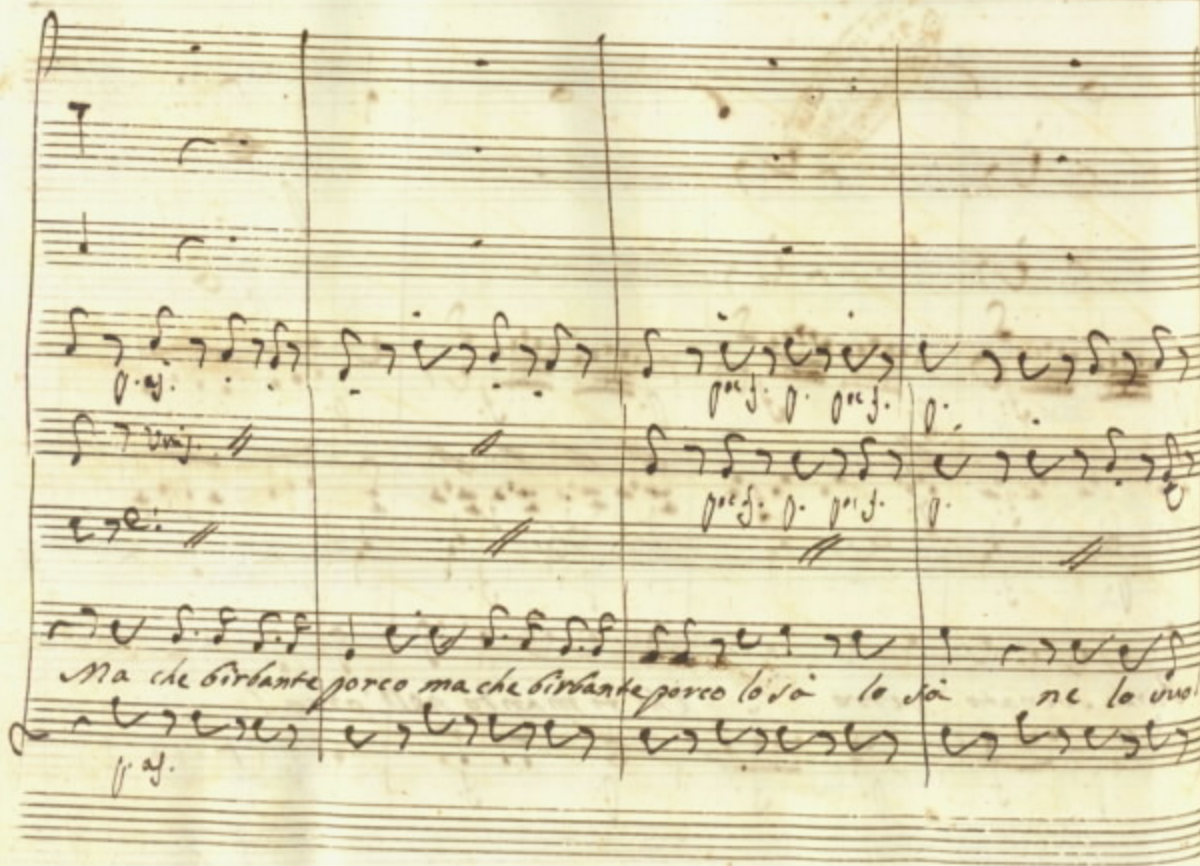 p. as.
poc f. p. poc f. p.
Unis.
poc f. p. poc f. p.
Ma che birbante porco ma che birbante porco lo sà lo sà ne lo vuol
p. as.